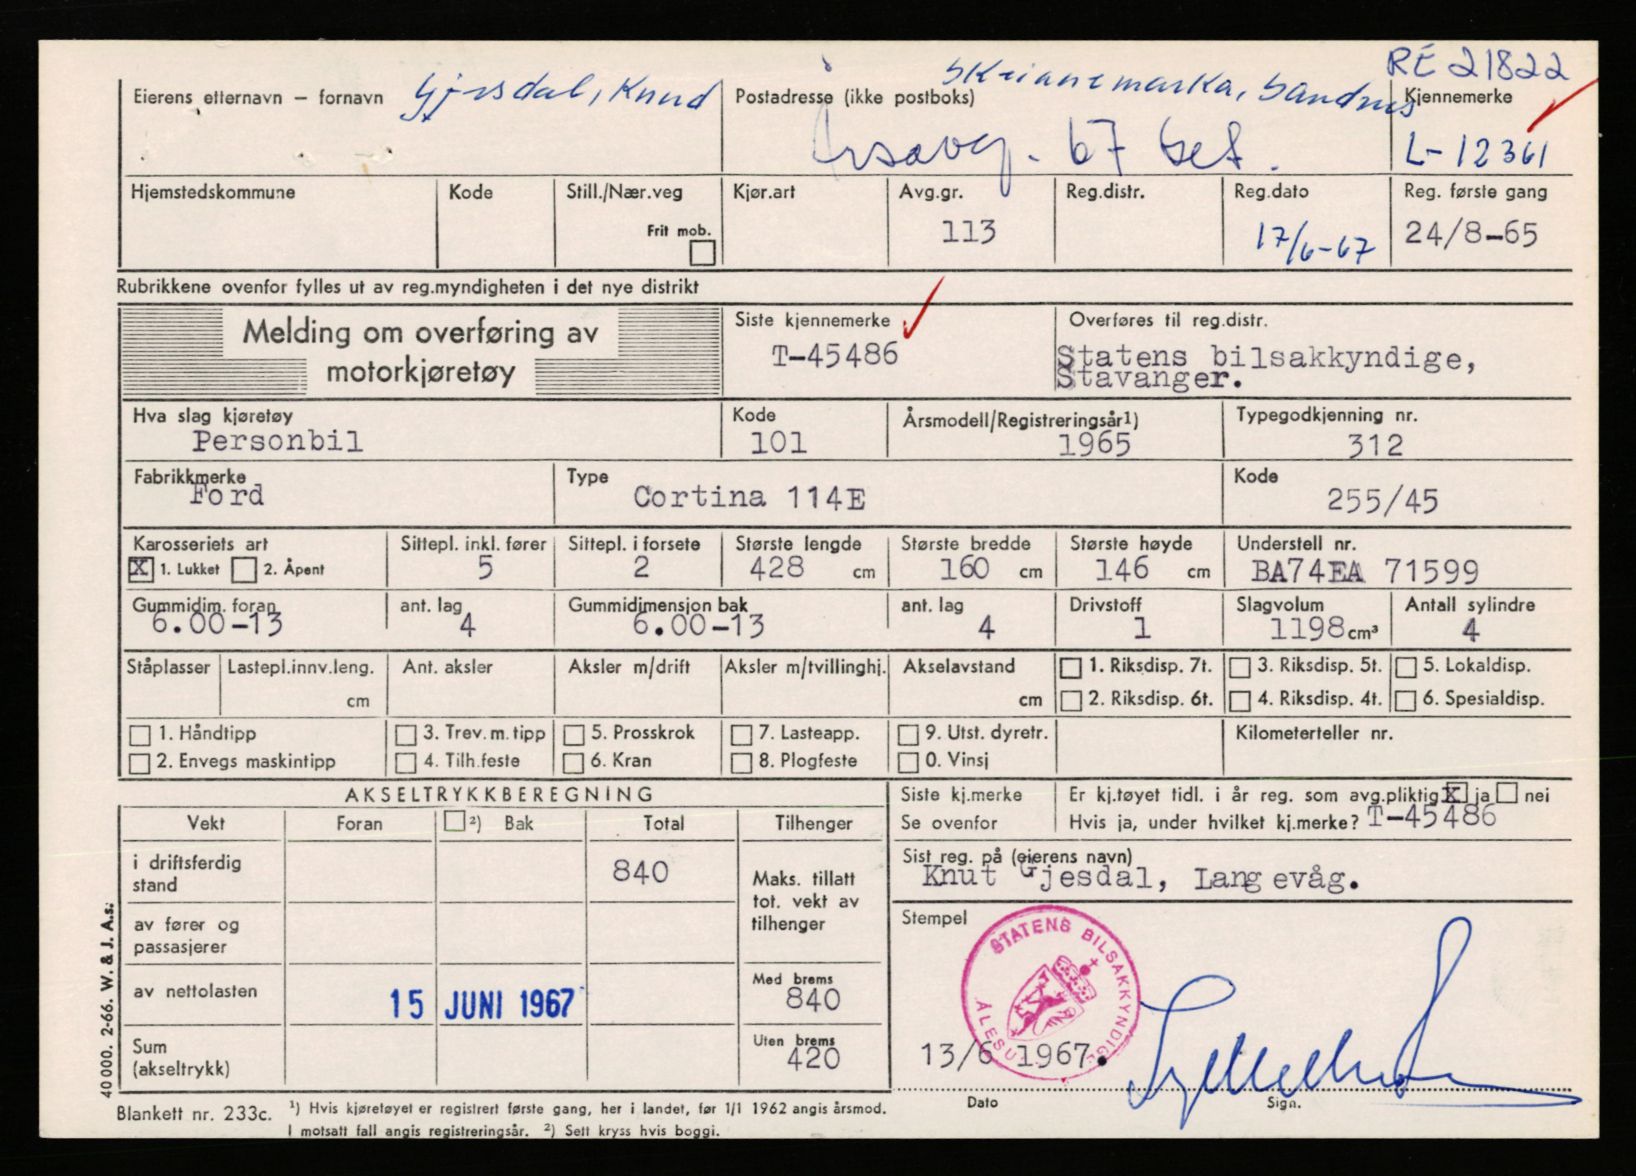 RE 21822
Eierens etternavn – fornavn Gjesdal, Knud
Postadresse (ikke postboks) Skeianemarka, Sandnes
Kjennemerke
67
L-12361
Hjemstedskommune Kode Still./Nær.veg Kjør.art Avg.gr. Reg.distr. Reg.dato Reg. første gang
Frit mob. 113 17/6-67 24/8-65
Rubrikkene ovenfor fylles ut av reg.myndigheten i det nye distrikt
Melding om overføring av
motorkjøretøy
Siste kjennemerke
T-45486
Overføres til reg.distr.
Statens bilsakkyndige,
Stavanger.
Hva slag kjøretøy Kode Årsmodell/Registreringsår1) Typegodkjenning nr.
Personbil 101 1965 312
Fabrikkmerke Type Kode
Ford Cortina 114E 255/45
Karosseriets art Sittepl. inkl. fører Sittepl. i forsete Største lengde Største bredde Største høyde Understell nr.
X 1. Lukket 2. Åpent 5 2 428 cm 160 cm 146 cm BA74EA 71599
Gummidim. foran ant. lag Gummidimensjon bak ant. lag Drivstoff Slagvolum Antall sylindre
6.00-13 4 6.00-13 4 1 1198 cm³ 4
Ståplasser Lastepl.innv.leng. Ant. aksler Aksler m/drift Aksler m/tvillinghj. Akselavstand 1. Riksdisp. 7t. 3. Riksdisp. 5t. 5. Lokaldisp.
cm cm 2. Riksdisp. 6t. 4. Riksdisp. 4t. 6. Spesialdisp.
1. Håndtipp 3. Trev. m. tipp 5. Prosskrok 7. Lasteapp. 9. Utst. dyretr. Kilometerteller nr.
2. Envegs maskintipp 4. Tilh.feste 6. Kran 8. Plogfeste 0. Vinsj
AKSELTRYKKBEREGNING
Siste kj.merke Er kj.tøyet tidl. i år reg. som avg.pliktig X ja nei
Se ovenfor Hvis ja, under hvilket kj.merke? T-45486
Vekt Foran 2) Bak Total Tilhenger
i driftsferdig
stand 840
Maks. tillatt
tot. vekt av
tilhenger
Sist reg. på (eierens navn)
Knut Gjesdal, Langevåg.
av fører og
passasjerer
Stempel
STATENS BILSAKKYNDIGE
ÅLESUND
av nettolasten 15 JUNI 1967
Med brems
840
Sum
(akseltrykk)
Uten brems
420
13/6 1967.
Dato Sign.
40 000. 2-66. W. & J. A.s.
Blankett nr. 233c. 1) Hvis kjøretøyet er registrert første gang, her i landet, før 1/1 1962 angis årsmod.
I motsatt fall angis registreringsår. 2) Sett kryss hvis boggi.